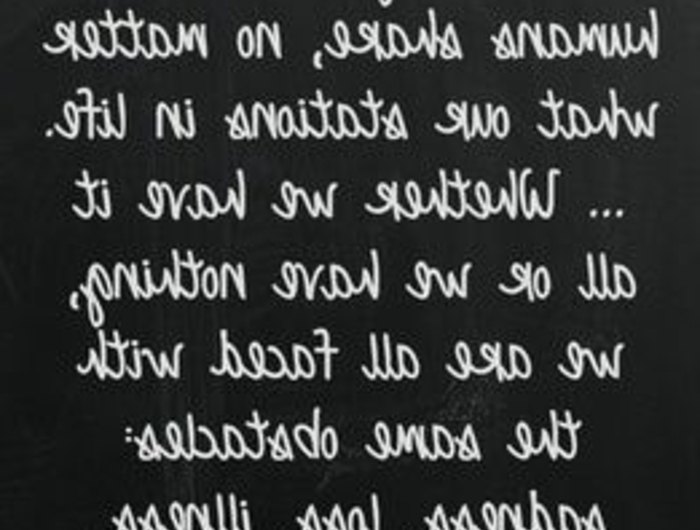 humans share, no matter
what our stations in life.
... Whether we have it
all or we have nothing,
we are all faced with
the same obstacles:
sadness, loss, illness